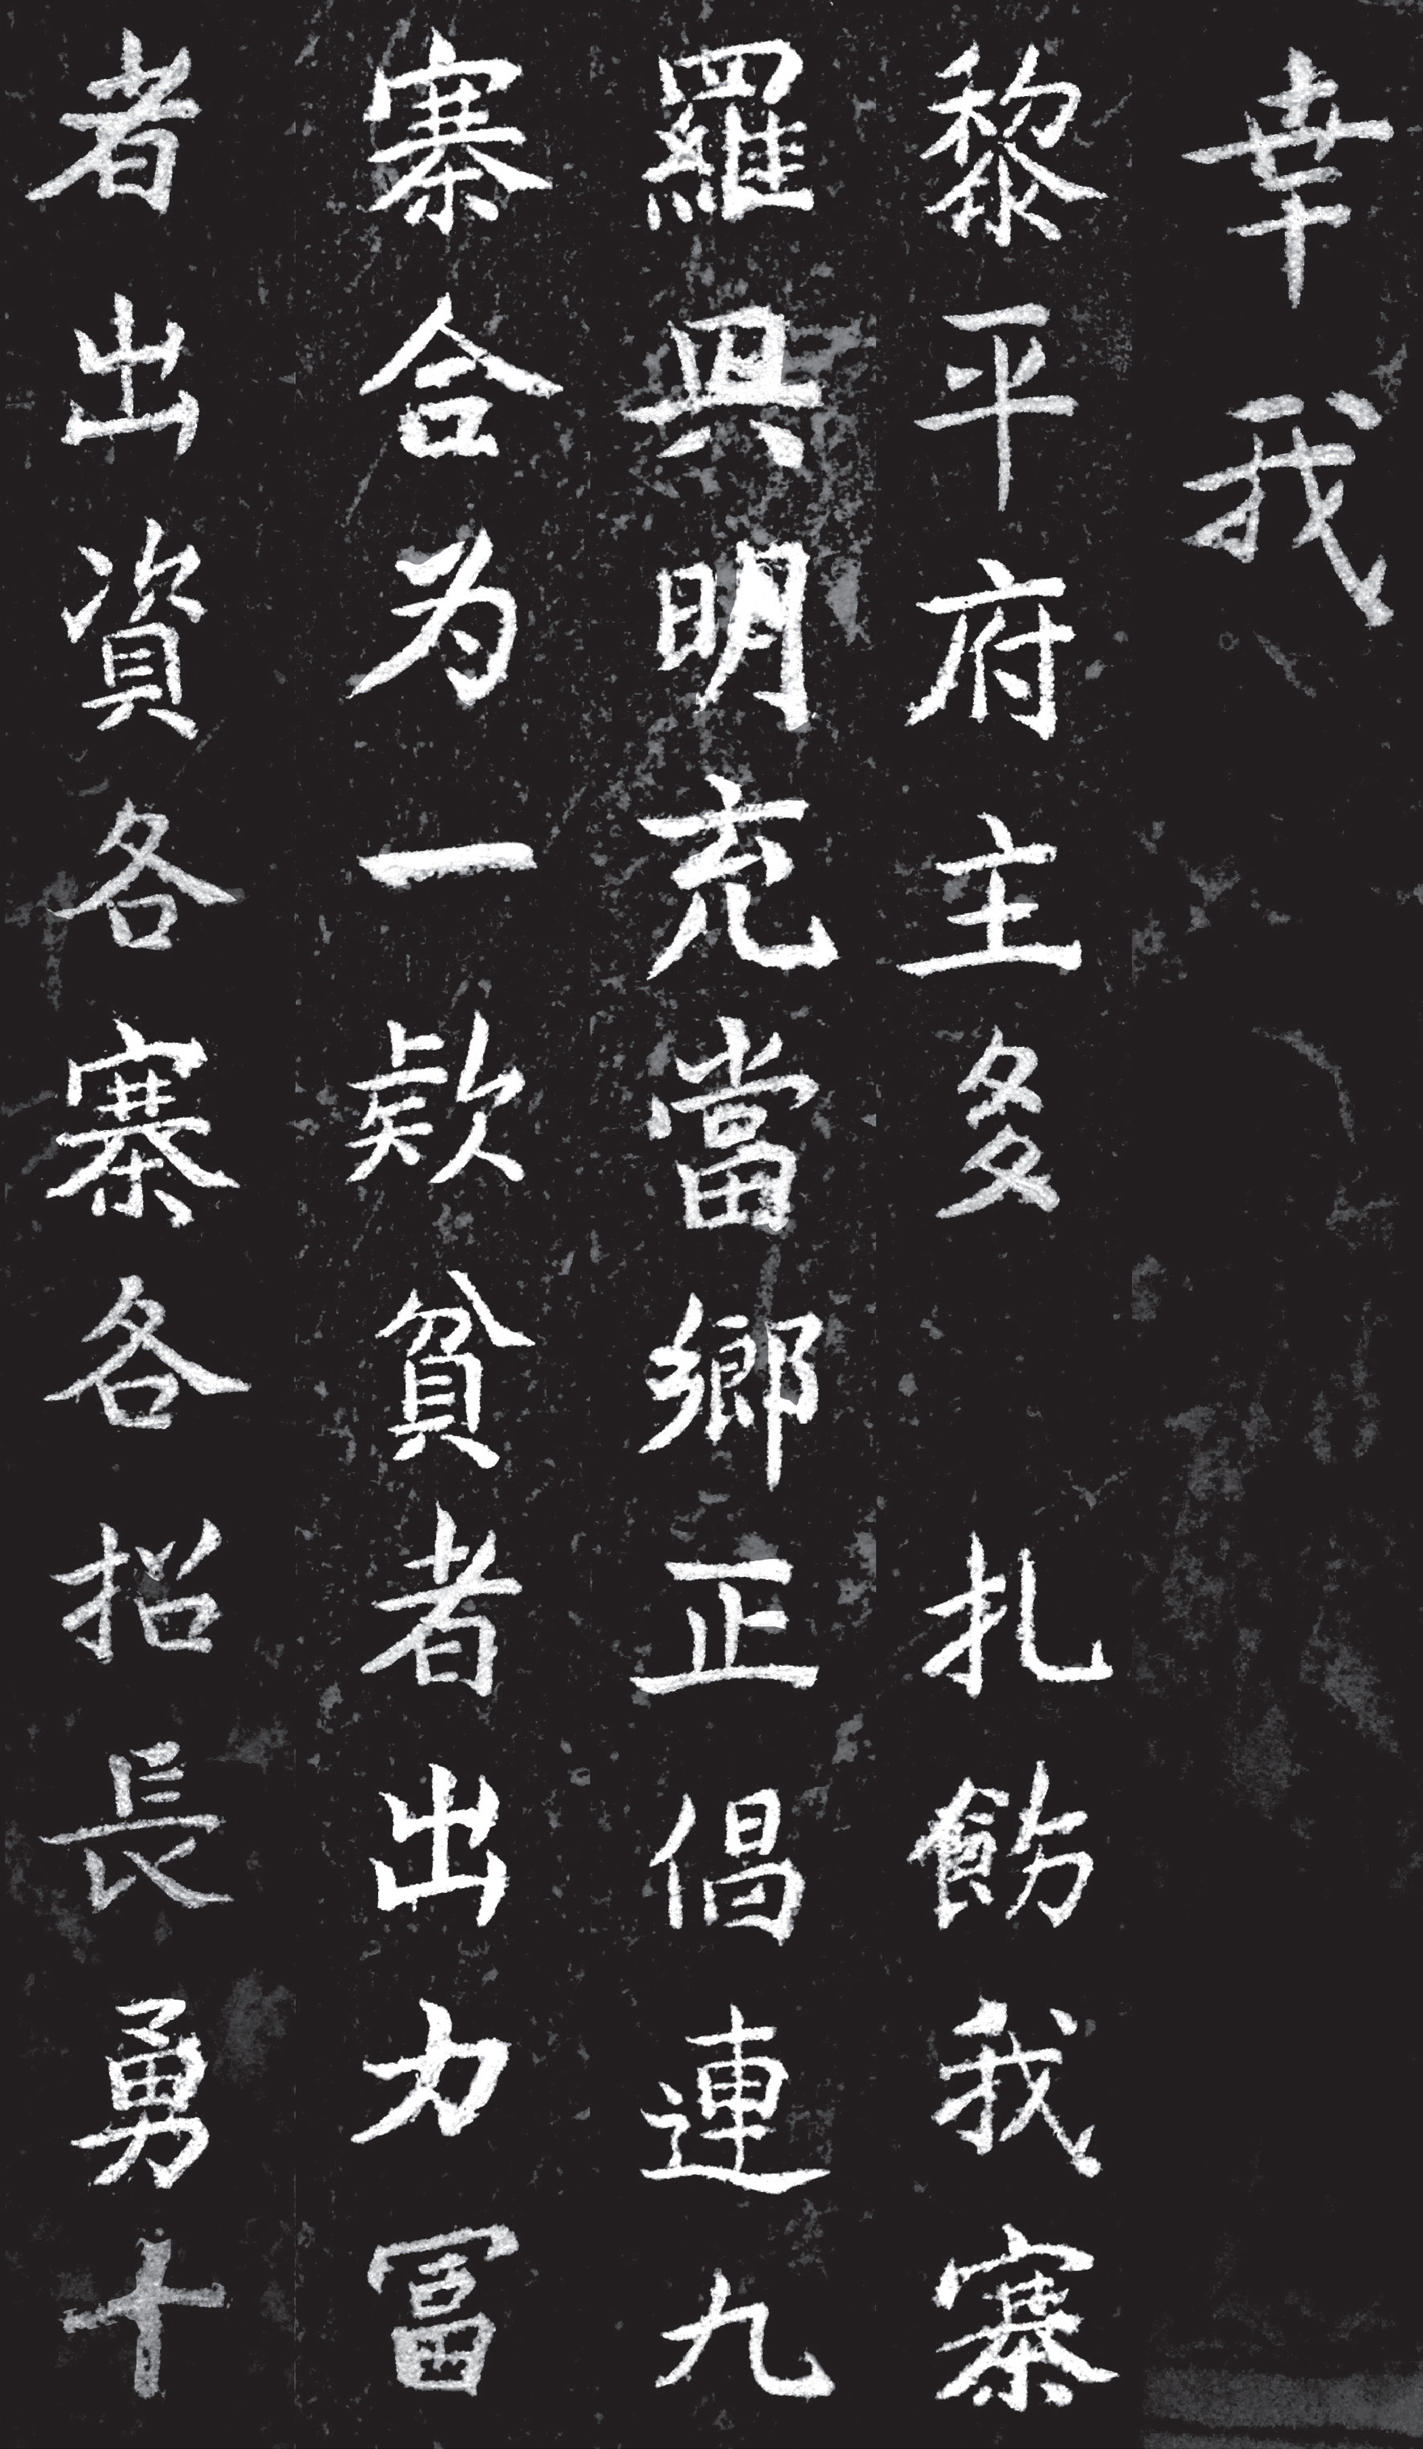 幸我
黎平府主多　扎飭我寨
羅興明充當鄉正倡連九
寨合为一欵貧者出力冨
者出資各寨各招長勇十